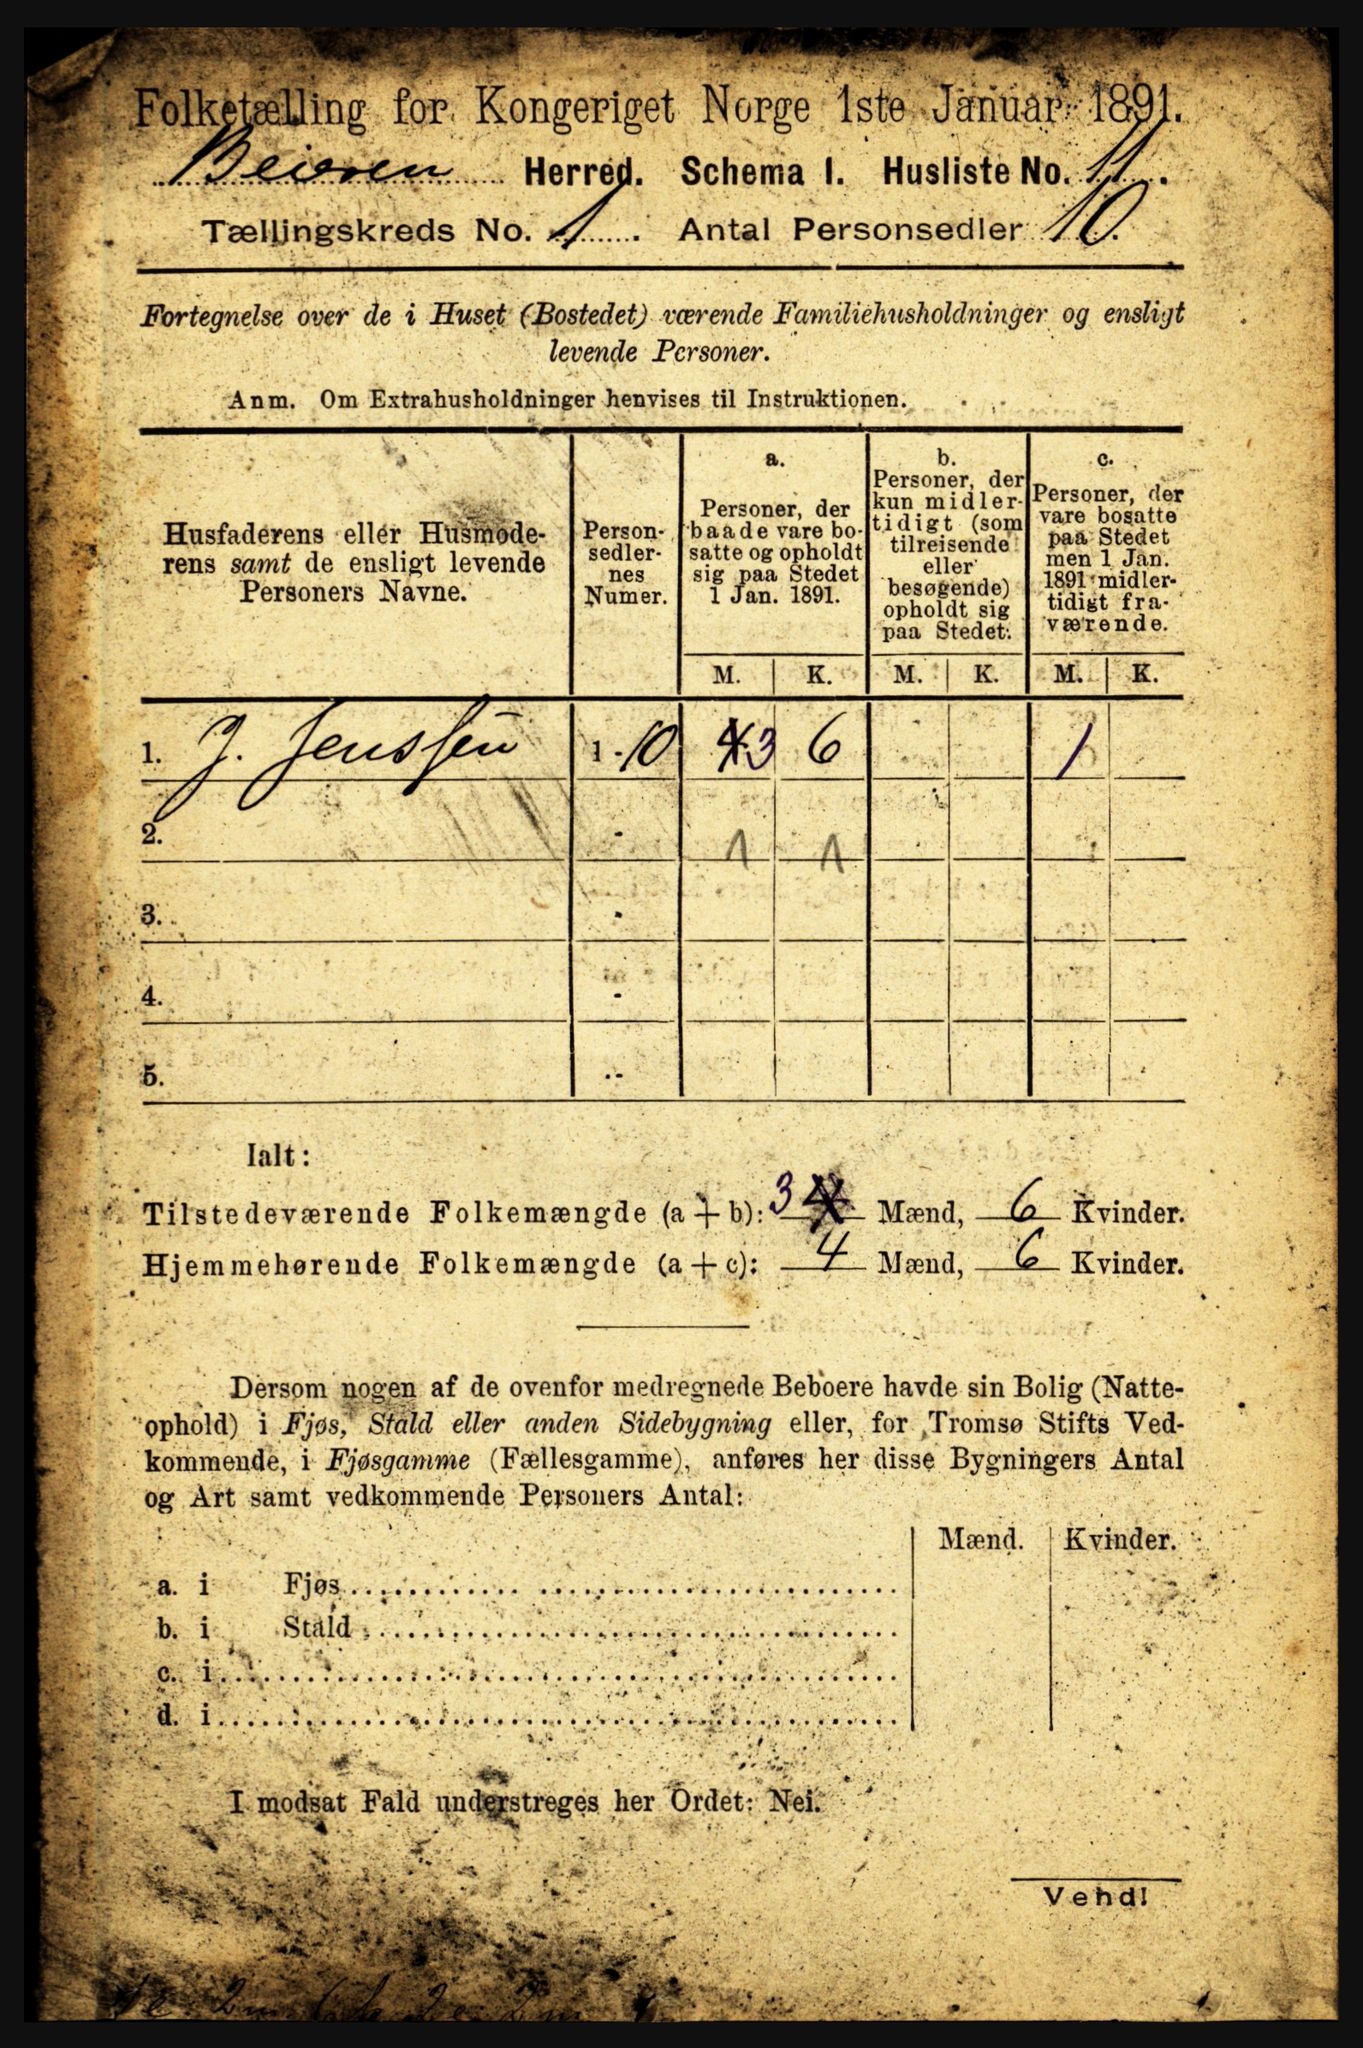 Folketælling for Kongeriget Norge 1ste Januar 1891.
Beieren Herred. Schema I. Husliste No. 11.
Tællingskreds No. 1. Antal Personsedler 10.
Fortegnelse over de i Huset (Bostedet) værende Familiehusholdninger og ensligt
levende Personer.
Anm. Om Extrahusholdninger henvises til Instruktionen.
Husfaderens eller Husmode-
rens samt de ensligt levende
Personers Navne.
Person-
sedler-
nes
Numer.
a.
Personer, der
baade vare bo-
satte og opholdt
sig paa Stedet
1 Jan. 1891.
b.
Personer, der
kun midler-
tidigt (som
tilreisende
eller
besøgende)
opholdt sig
paa Stedet.
c.
Personer, der
vare bosatte
paa Stedet
men 1 Jan.
1891 midler-
tidigt fra-
værende.
M. K. M. K. M. K.
1. J. Jenssen 1 - 10 4 3 6 1
2. - 1 1
3. -
4. -
5. -
Ialt:
Tilstedeværende Folkemængde (a + b): 3 4 Mænd, 6 Kvinder.
Hjemmehørende Folkemængde (a + c): 4 Mænd, 6 Kvinder.
Dersom nogen af de ovenfor medregnede Beboere havde sin Bolig (Natte-
ophold) i Fjøs, Stald eller anden Sidebygning eller, for Tromsø Stifts Ved-
kommende, i Fjøsgamme (Fællesgamme), anføres her disse Bygningers Antal
og Art samt vedkommende Personers Antal:
Mænd. Kvinder.
a. i Fjøs
b. i Stald
c. i
d. i
I modsat Fald understreges her Ordet: Nei.
Vend!